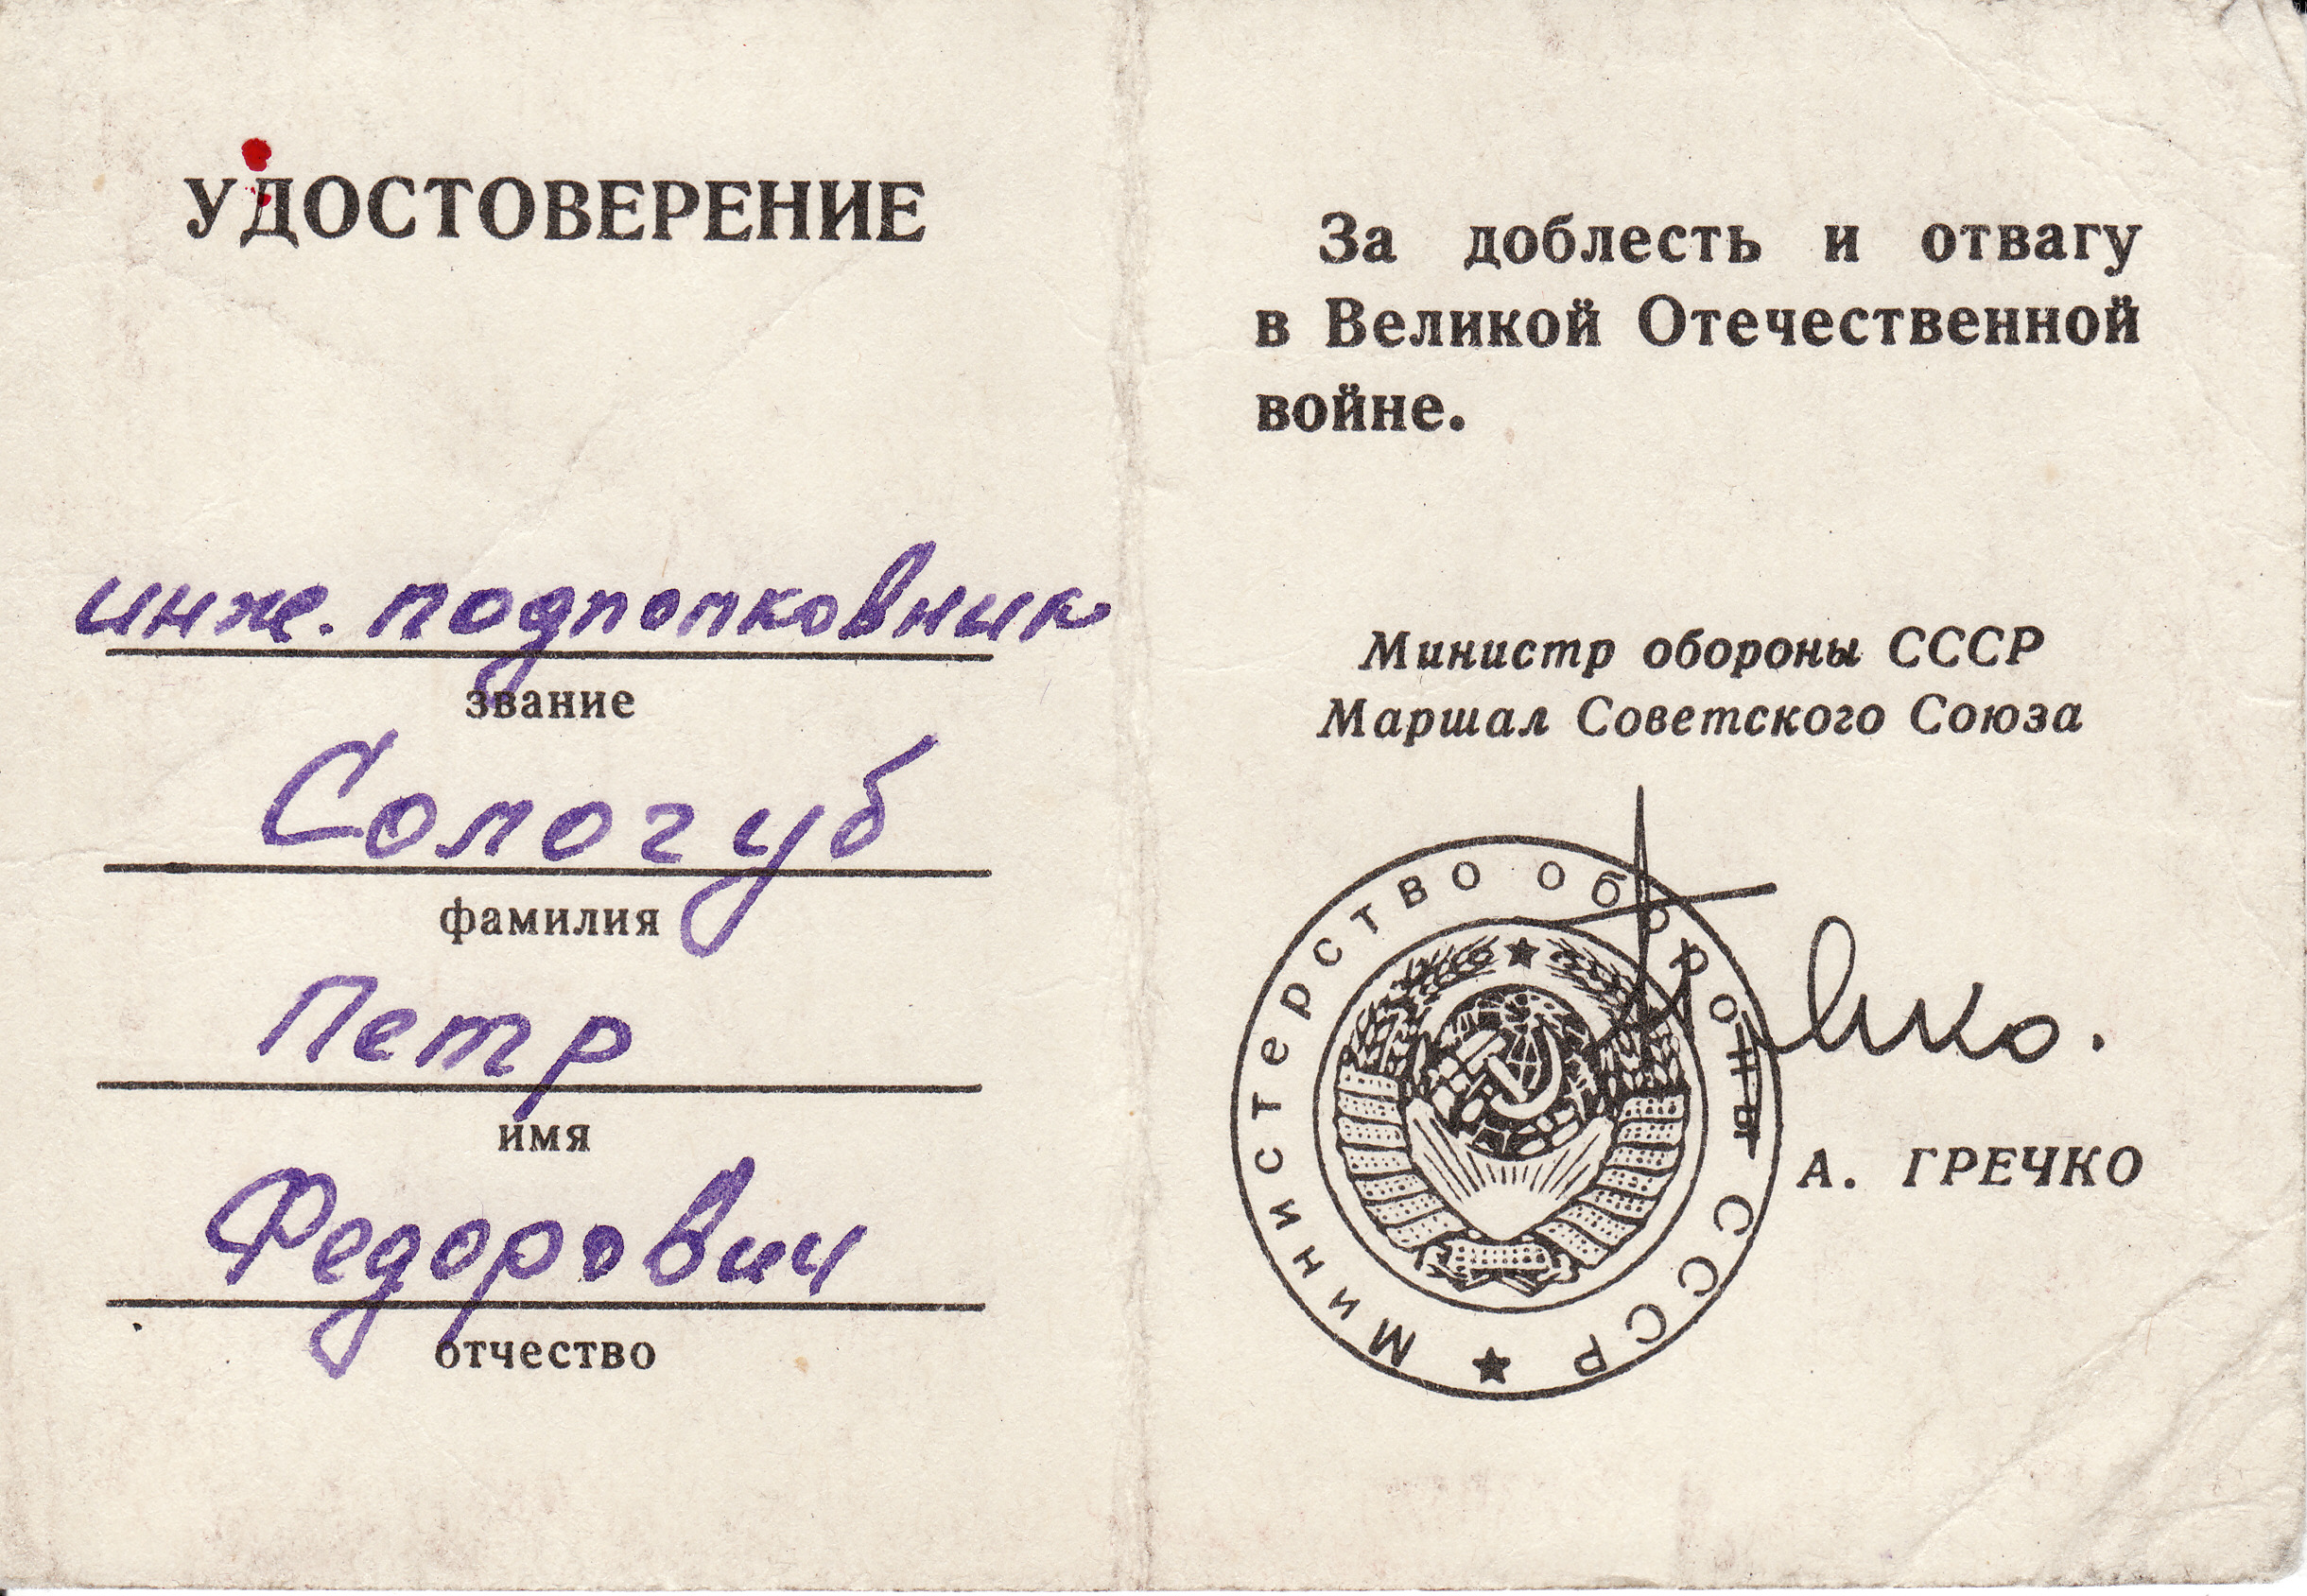 УДОСТОВЕРЕНИЕ
инже. подполковник
звание
Сологуб
фамилия
Петр
имя
Федорович
отчество
За доблесть и отвагу
в Великой Отечественной
войне.
Министр обороны СССР
Маршал Советского Союза
Министерство обороны СССР
А. ГРЕЧКО